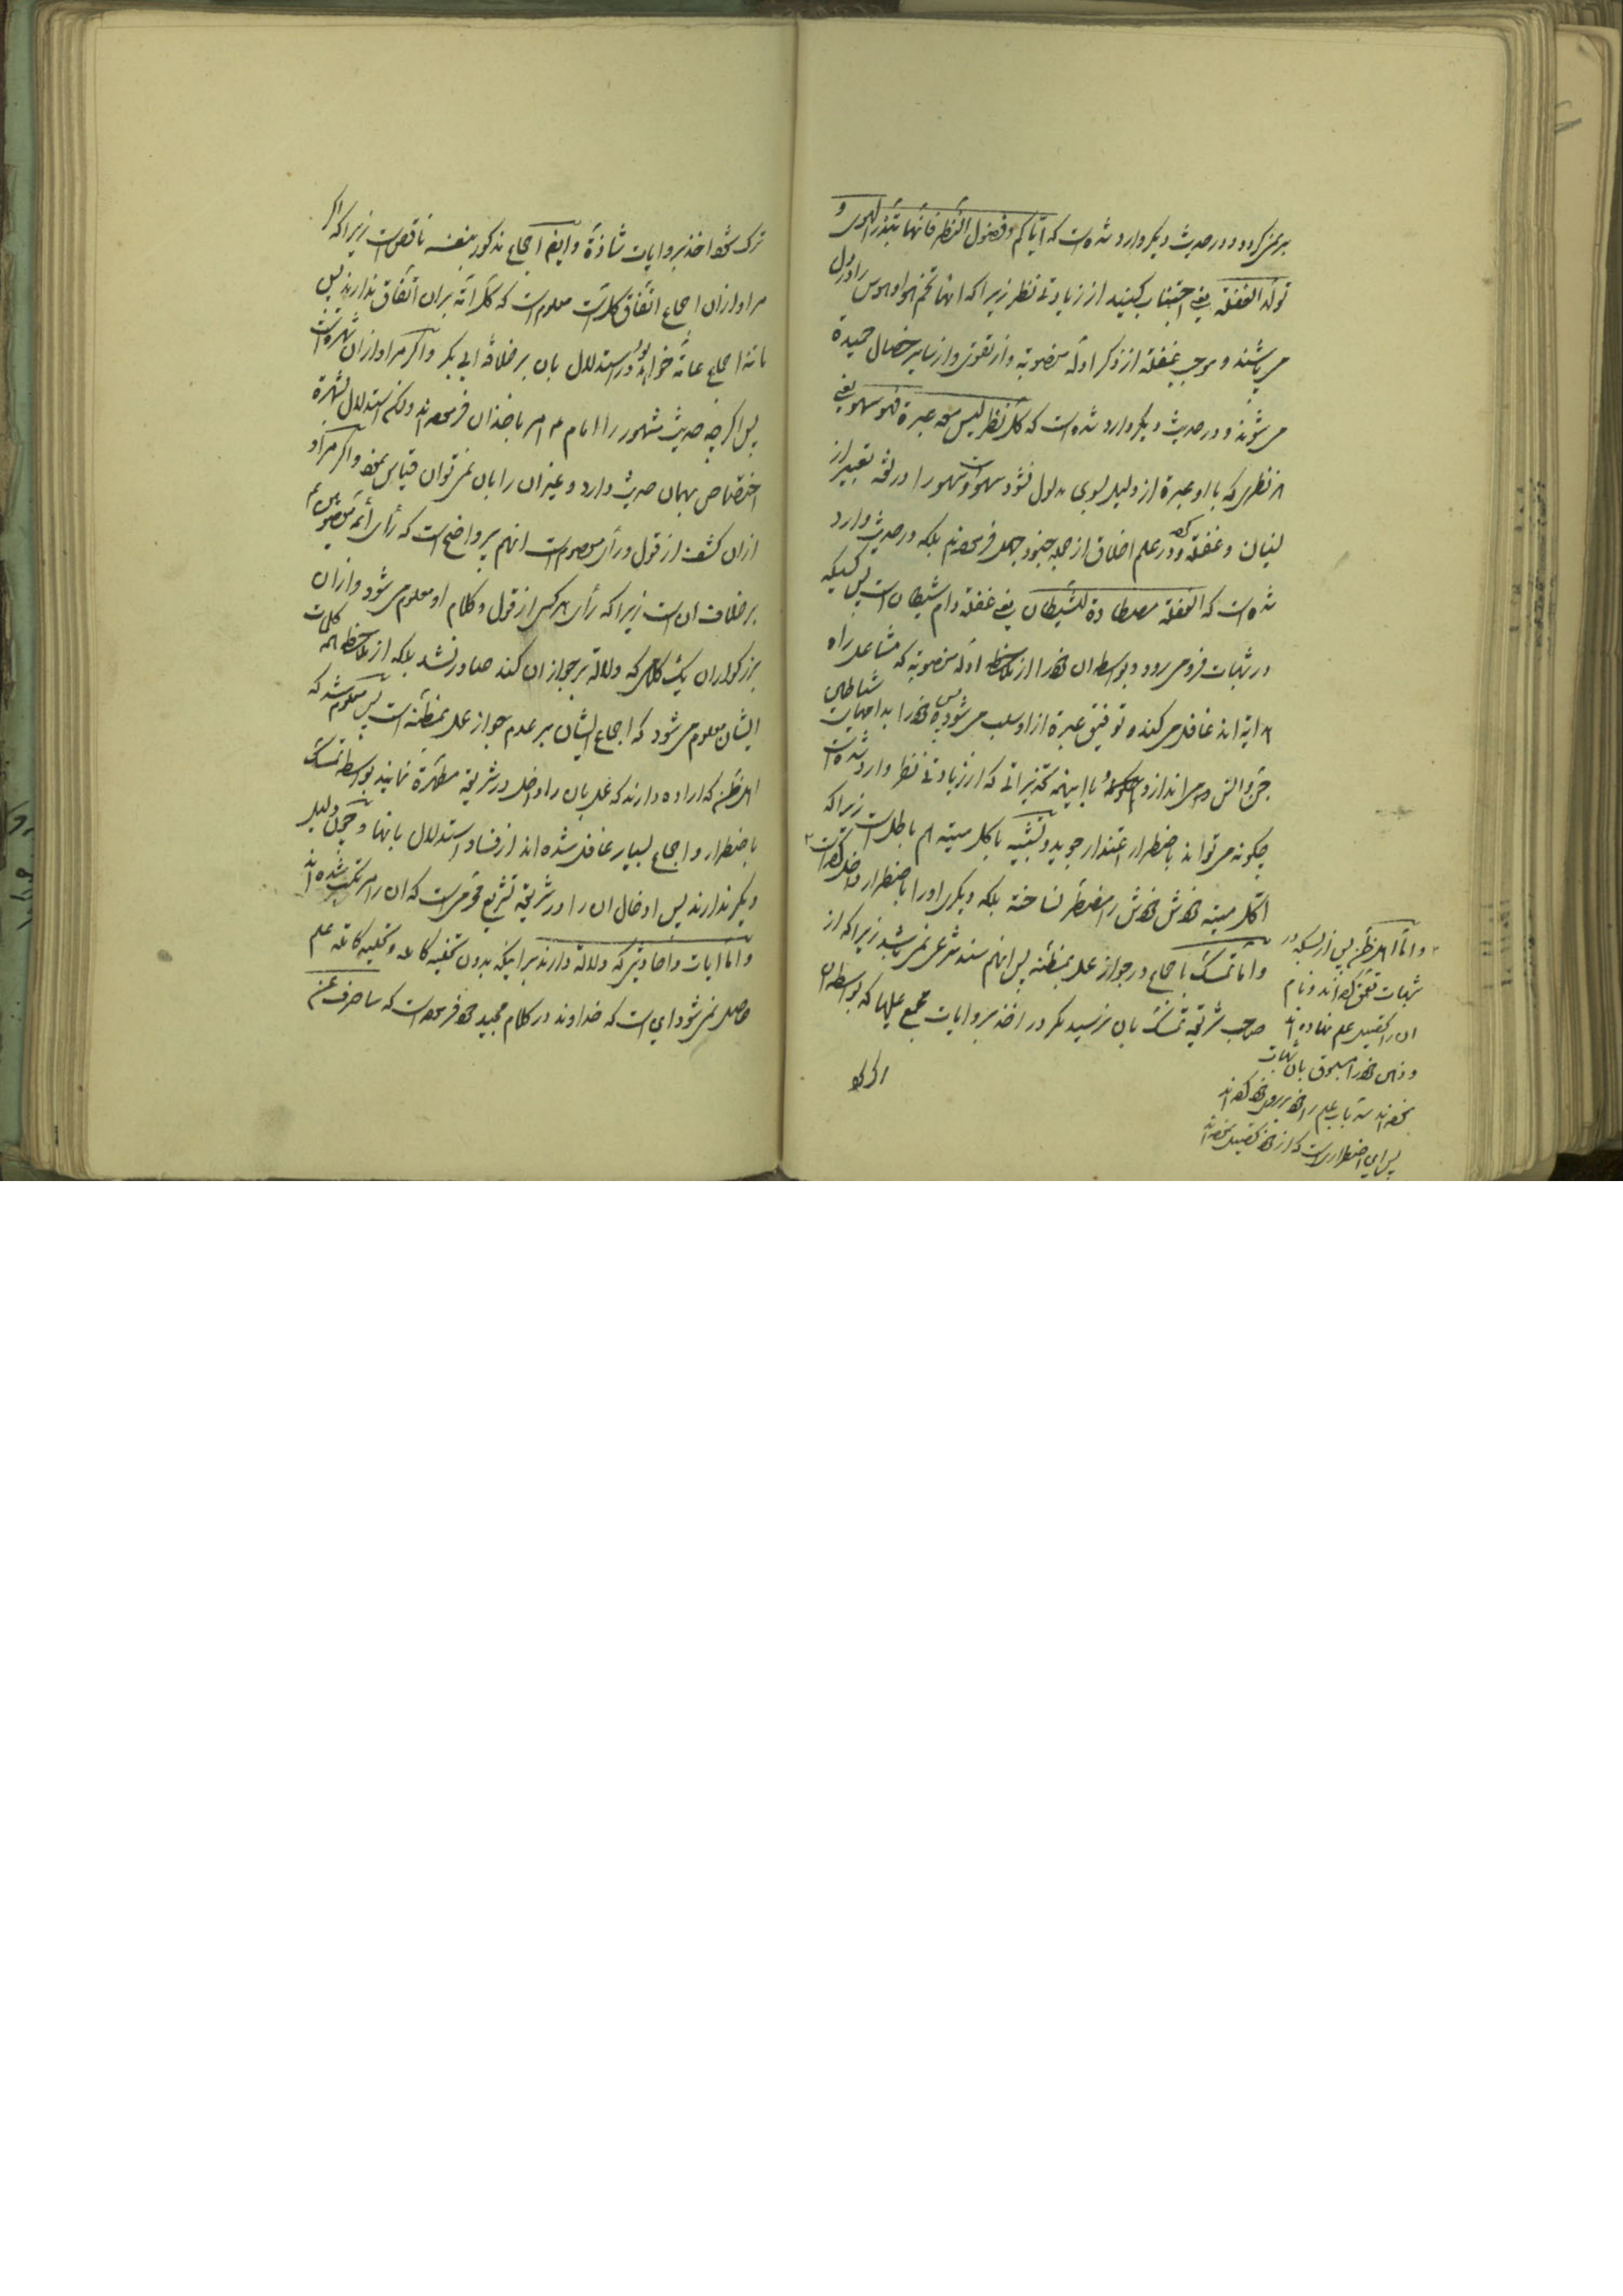 بر نمی‌گردد و در حدیث دیگر وارد شده است که ایّاکم و فضول النّظر فانّها تبذر الهوی و
تولّد الغفلة یعنی اجتناب کنید از زیادتی نظر زیرا که انها تخم هوا و هوس را در دل
می‌پاشند و موجب غفلة از ذکر ادلّه منصوبة و از تقوی و از سایر خصال حمیدة
می‌شوند و در حدیث دیگر وارد شده است که کلّ نظر لیس معه عبرة فهو سهو یعنی
هر نظری که با او عبرة از دلیل بسوی مدلول نشود سهو است و سهو را در لغة تعبیر از
نسیان و غفلة کرده و در علم اخلاق از جمله جنود جهل فرموده‌اند بلکه در حدیث وارد
شده است که الغفلة مصطادة للشّیطان یعنی غفلة دام شیطان است پس کسیکه
در شبهات فرو می‌رود و بواسطه ان خود را از ملاحظه ادلّه منصوبة که مشاعل راه
هدایة اند غافل می‌کند و توفیق عبرة از او سلب می‌شود پس خود را بدام شیاطین
جنّ و انس می‌اندازد با اینهمه تحذیراتی که از زیادتی نظر وارد شده است
چگونه می‌تواند باضطرار اعتذار جوید و تشبیه باکل میتة هم باطل است زیرا که
اکل میته خودش خودش را مضطرّ نساخته بلکه دیگری او را باضطرار داخل کرده است
و امّا تمسّک باجماع در جواز عمل بمظنّه پس انهم سند شرعی نمی‌باشد زیرا که از
صاحب شریعة تمسّک بان نرسید مگر در اخذ بروایات مجمع علیها که بواسطه ان
و امّا اهل ظنّ پس از بسکه در
شبهات تعمّق کرده‌اند و نام
ان را تحصیل علم نهاده‌اند
و ذهن خود را مسبوق بان شبهات
نموده‌اند سدّ باب علم را خود بر روی خود کرده‌اند
پس این اضطراریست که از خود تحصیل نموده‌اند
ترک شود اخذ بروایات شاذّة و ایضا اجماع مذکور بنفسه ناقص است زیرا که اگر
مراد از ان اجماع اتّفاق کلّ است معلوم است که کلّ امّة بر ان اتّفاق ندارند پس
مانند اجماع عامّه خواهد بود در استدلال بان بر خلافة ابی بکر و اگر مراد از ان شهرت است
پس اگر چه حدیث مشهور را امام ع امر باخذ ان فرموده‌اند ولکن استدلال بشهرة
اختصاص بهمان حدیث دارد و غیر ان را بان نمی‌توان قیاس نمود و اگر مراد
از ان کشف از قول و رأی معصوم است انهم پر واضح است که رأی ائمّه معصومین ع
بر خلاف ان است زیرا که رأی هر کس از قول و کلام او معلوم می‌شود و از ان
بزرگواران یک کلامی که دلالة بر جواز ان کند صادر نشد بلکه از ملاحظه همه کلمات
ایشان معلوم می‌شود که اجماع ایشان بر عدم جواز عمل بمظنّه است پس معلوم شد که
اهل ظنّ که اراده دارند که عمل بان را داخل در شریعة مطهّرة نمایند بواسطه تمسّک
باضطرار و اجماع بسیار غافل شده‌اند از فساد استدلال بانها و چون دلیل
دیگر ندارند پس ادخال ان را در شریعة تشریع محرّمی است که ان را مرتکب شده‌اند
و امّا ایات و احادیثی که دلالة دارند بر اینکه بدون تخلیه کامله و تحلیه کامله علم
حاصل نمی‌شود این است که خداوند در کلام مجید خود فرموده است که ساصرف عن